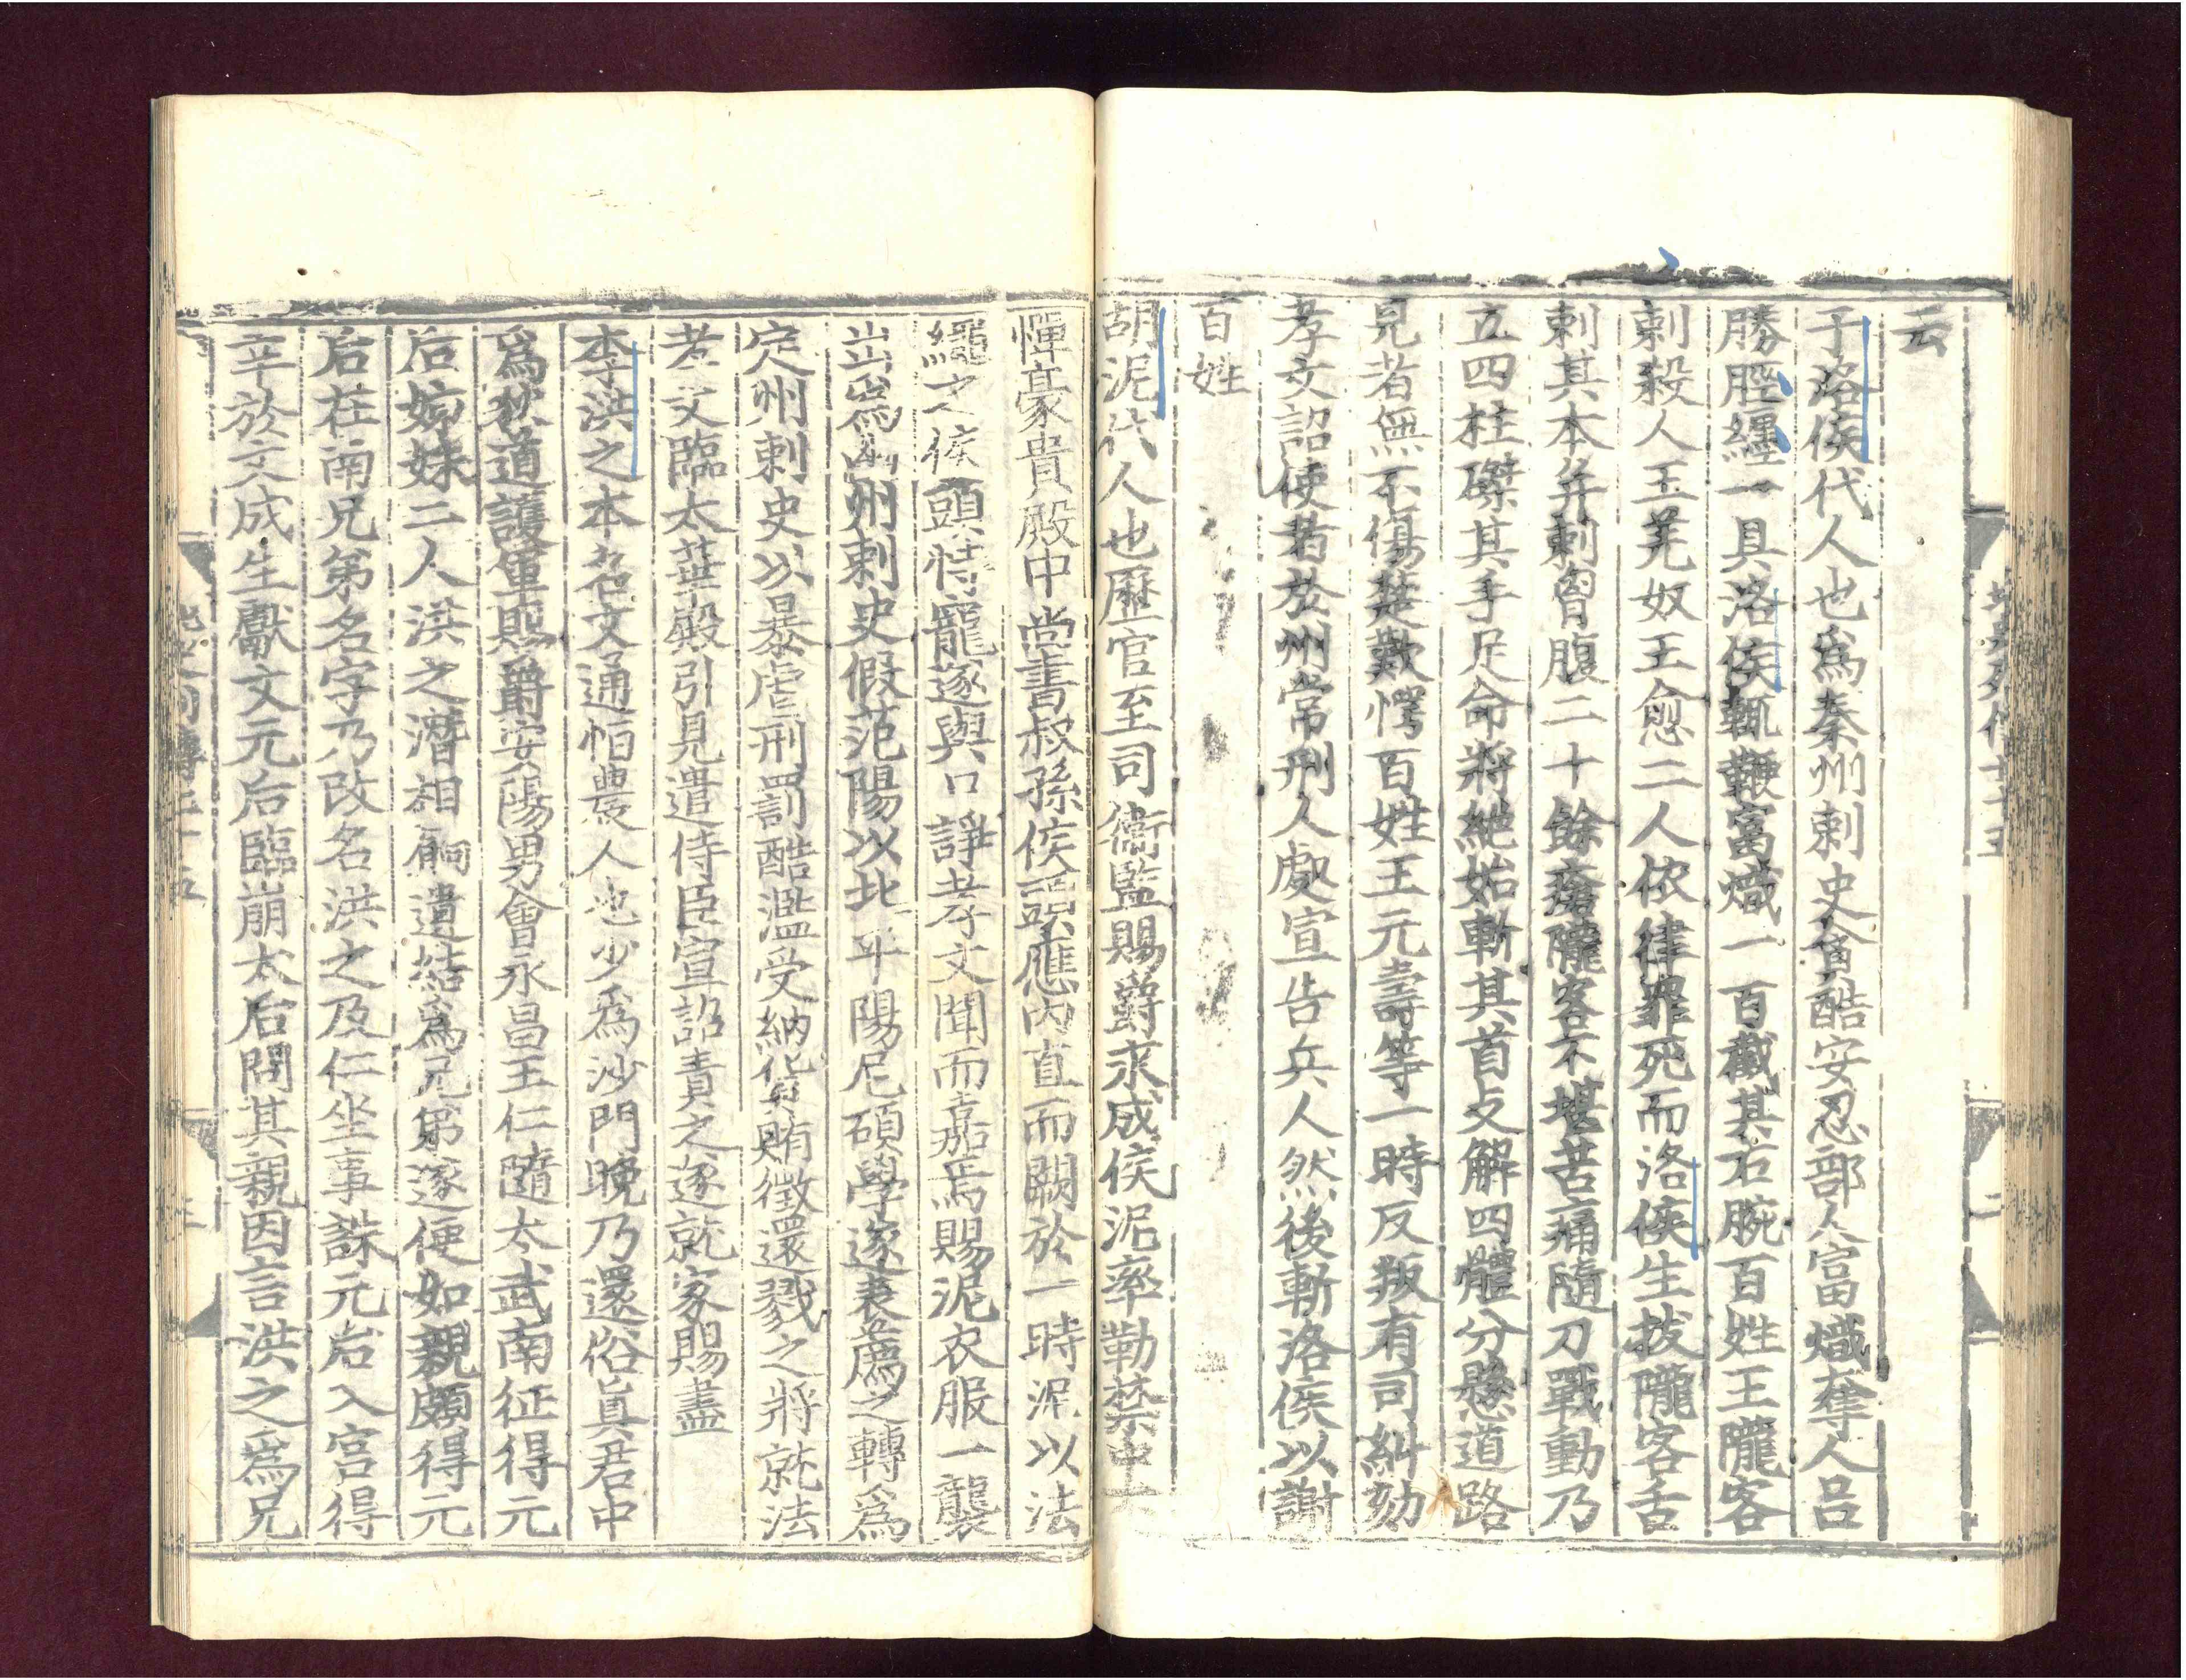 云
于洛侯代人也爲秦州刺史貪酷安忍部人富熾奪人吕
勝脛纏一具洛侯輒鞭富熾一百截其右腕百姓王隴客
刺殺人王羌奴王愈二人依律罪死而洛侯生拔隴客舌
刺其本并刺胷腹二十餘瘡隴客不堪苦痛隨刀戰動乃
立四柱磔其手足命將絶始斬其首攴解四體分懸道路
見者無不傷楚歎愕百姓王元壽等一時反叛有司糾劾
孝文詔使者於州常刑人處宣告兵人然後斬洛侯以謝
百姓
胡泥代人也歷官至司衛監賜爵求成侯泥率勒禁中不
憚豪貴殿中尚書叔孫侯頭應内直而闕於一時泥以法
繩之侯頭恃寵遂與口諍孝文聞而嘉焉賜泥衣服一襲
出爲幽州刺史假范陽以北平陽尼碩學遂表薦之轉爲
定州刺史以暴虐刑罰酷濫受納貨賄徵還戮之將就法
孝文臨太華殿引見遣侍臣宣詔責之遂就家賜盡
李洪之本名文通怕農人也少爲沙門晚乃還俗眞君中
爲狄道護軍賜爵安陽男會永昌王仁隨太武南征得元
后姊妹二人洪之潛相餉遺結爲兄弟遂便如親頗得元
后在南兄弟名字乃改名洪之及仁坐事誅元后入宫得
幸於文成生獻文元后臨崩太后問其親因言洪之爲兄